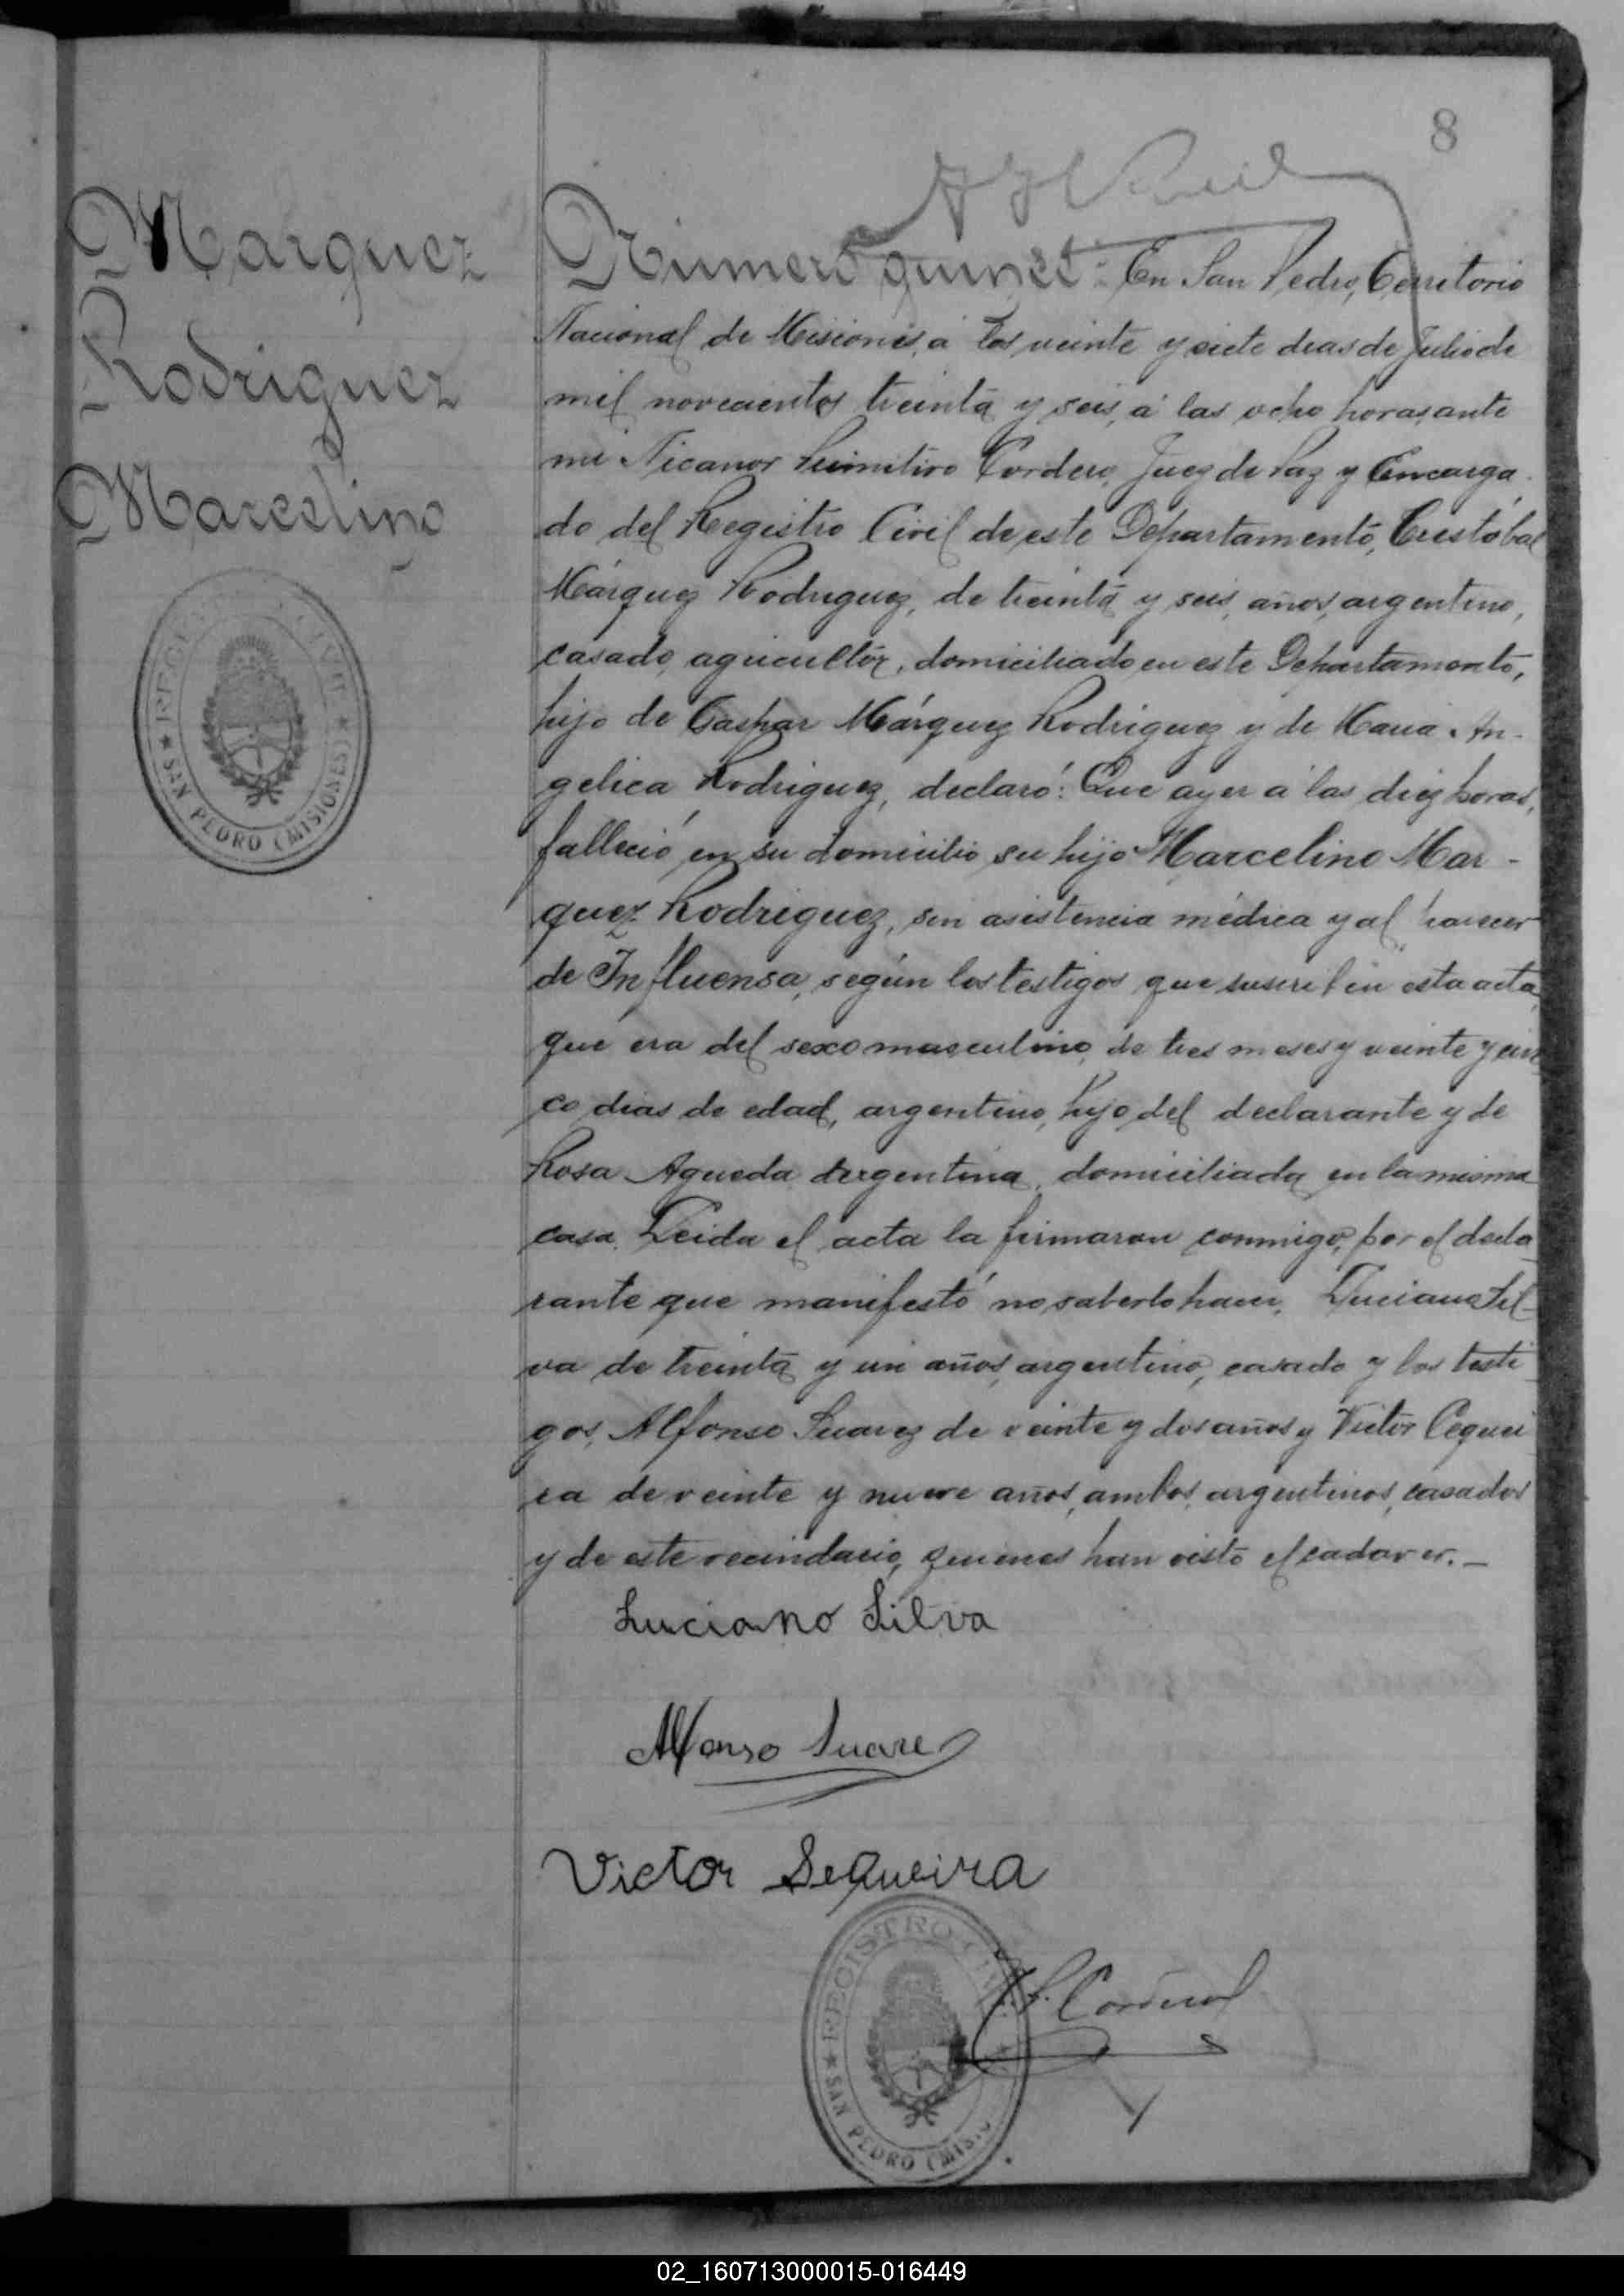 8
Marquez
Rodriguez
Marcelino
REGISTRO CIVIL
SAN PEDRO (MISIONES)
Número quince: En San Pedro, Territorio
Nacional de Misiones, á los veinte y siete dias de Julio de
mil novecientos treinta y seis, á las ocho horas, ante
mi Nicanor Primitivo Cordero, Juez de Paz y Encarga-
do del Registro Civil de este Departamento, Cristóbal
Márquez Rodriguez, de treinta y seis años, argentino,
casado, agricultor, domiciliado en este Departamento,
hijo de Gaspar Márquez Rodriguez y de Maria An-
gelica Rodriguez, declaró: Que ayer á las diez horas,
falleció en su domicilio su hijo Marcelino Mar-
quez Rodriguez, sin asistencia médica y al parecer
de Influensa, según los testigos que suscriben esta acta,
que era del sexo masculino, de tres meses y veinte y cin
co dias de edad, argentino, hijo del declarante y de
Rosa Agueda Argentina, domiciliada en la misma
casa. Leida el acta la firmaron conmigo, por el decla
rante que manifestó no saberlo hacer, Luciano Sil-
va de treinta y un años, argentino, casado y los testi
gos, Alfonso Suarez de veinte y dos años y Victor Cequei
ra de veinte y nueve años, ambos argentinos, casados
y de este vecindario, quienes han visto el cadaver. —
Luciano Silva
Alfonso Suarez
Victor Sequeira
REGISTRO
SAN PEDRO (MIS
02_160713000015-016449